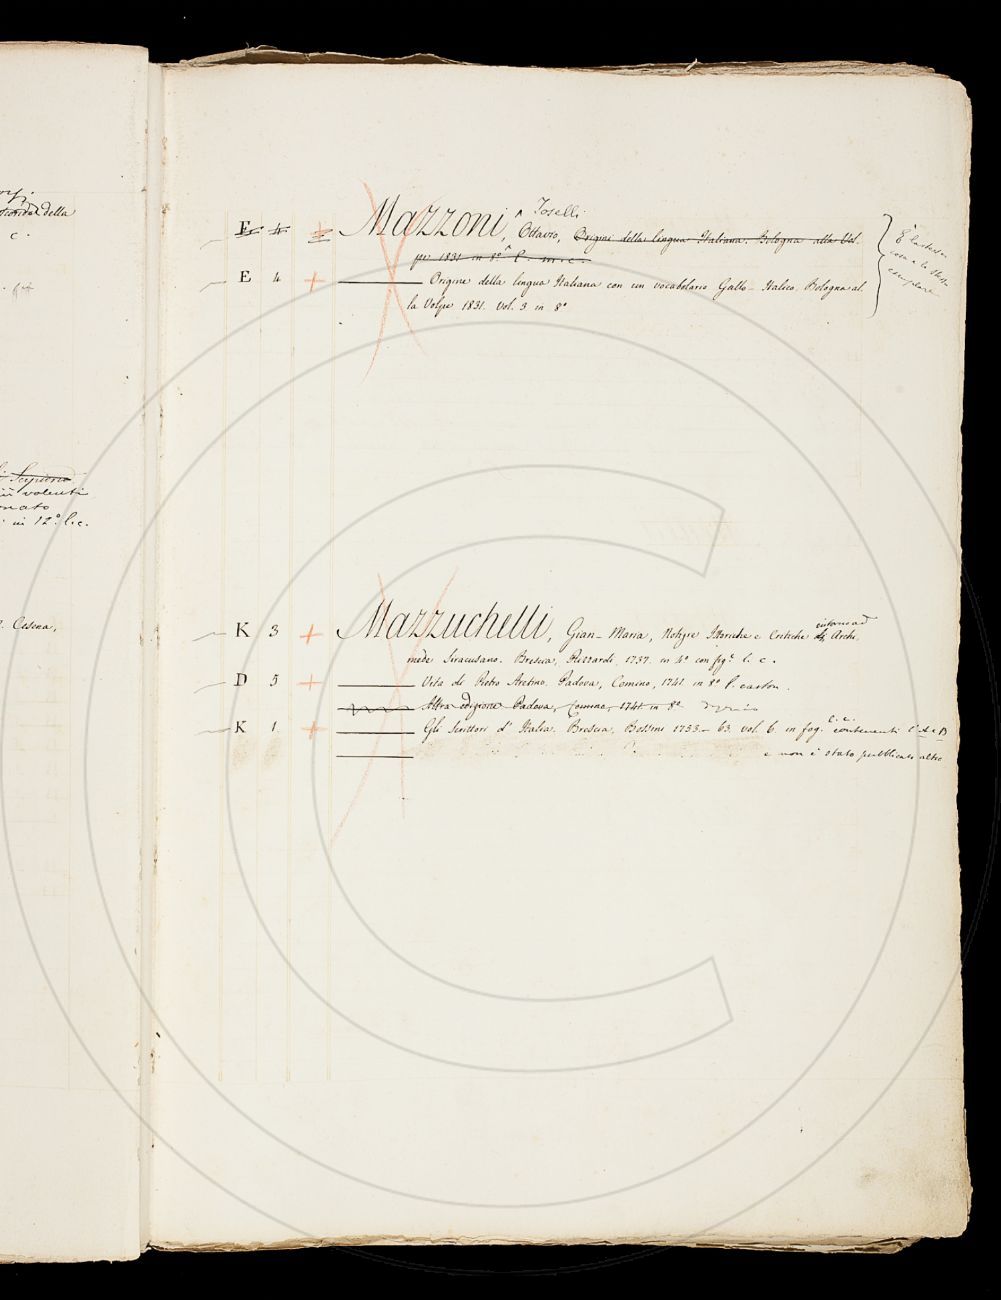 della
c.
Scipione
volenti
nato
in 12º l. c.
Cesena,
Toselli
E 4 + Mazzoni, Ottavio, Origini della lingua Italiana. Bologna alla Vol.
pe 1831 in 8º l. m. c.
E 4 + Origine della lingua Italiana con un vocabolario Gallo-Italico. Bologna al.
la Volpe 1831. Vol. 3 in 8º
È
cosa
K 3 + Mazzuchelli, Gian-Maria, Notizie Istoriche e Critiche Archi.
mede Siracusano. Brescia, Rizzardi, 1737. in 4º con figº. l. c.
D 5 + Vita di Pietro Aretino. Padova, Comino, 1741. in 8º l. carton.
Altra edizione Padova, Comino, 1741. in 8º
l. c.
K 1 + Gli Scrittori d'Italia. Brescia, Bossini 1753-63. vol. 6. in fog. contenenti l'A e B
e non è stato pubblicato altro